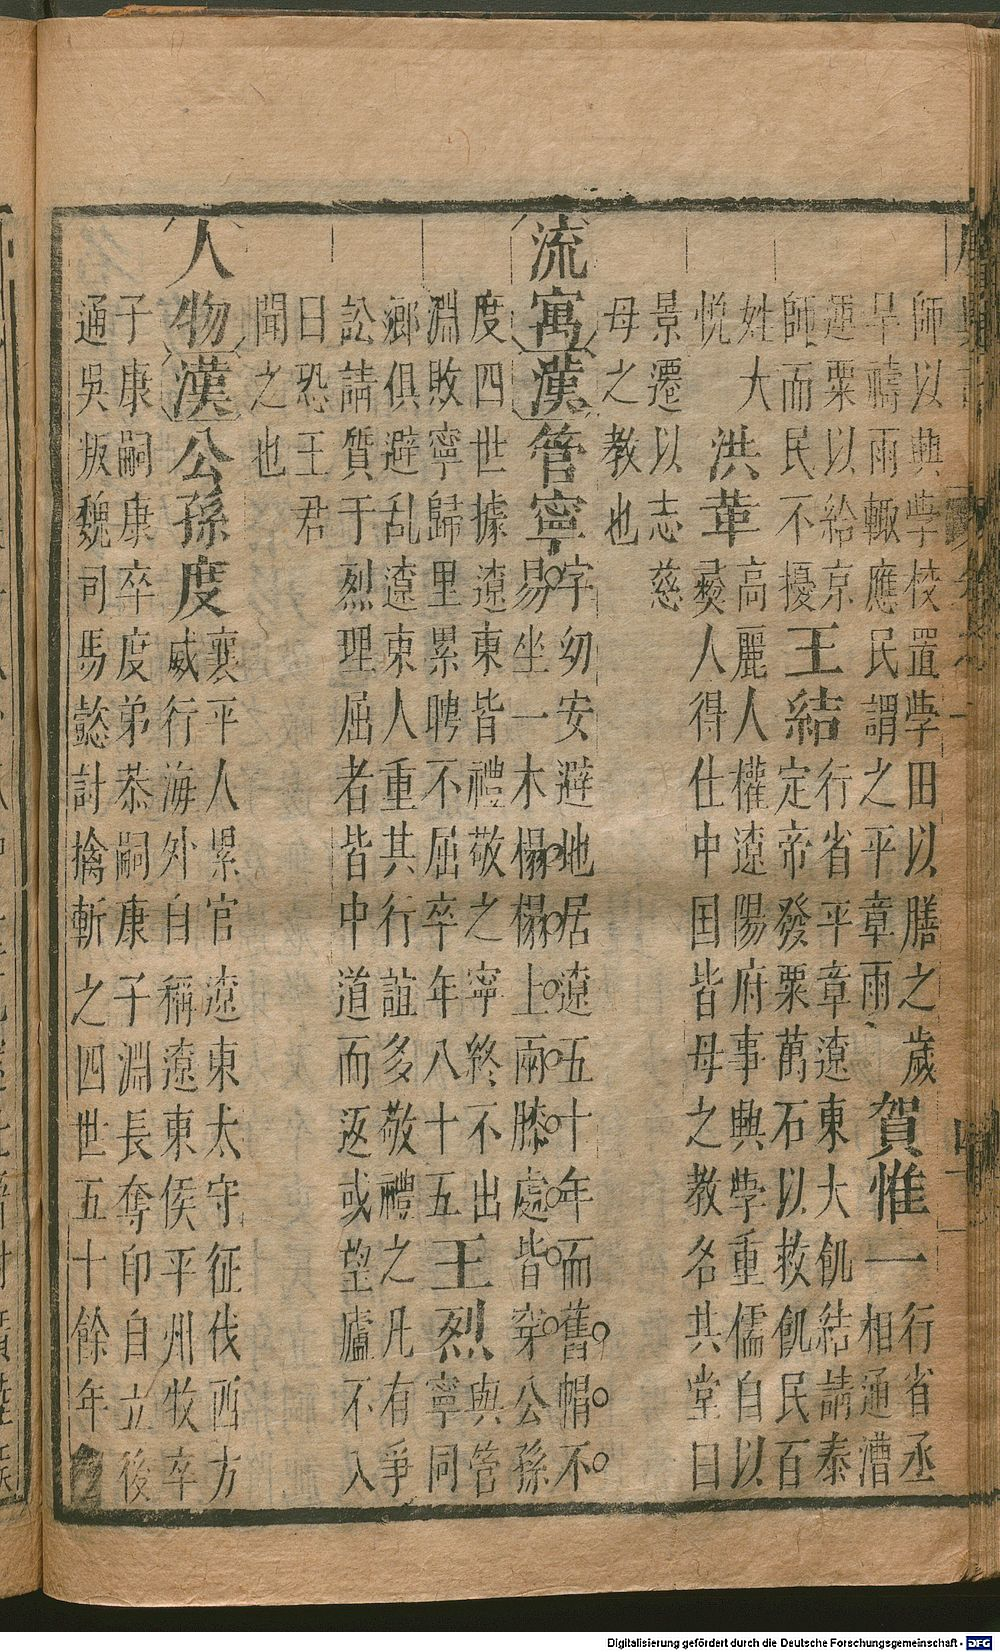 師以興學校置學田以膳之歲
旱禱雨輙應民謂之平章雨
賀惟一
行省丞
相通漕
運粟以給京
師而民不擾
王結
行省平章遼東大飢結請泰
定帝發粟萬石以救飢民百
姓大
悅
洪革
高麗人權遼陽府事興學重儒自以
彛人得仕中国皆母之教名其堂曰
景遷以志慈
母之教也
流寓漢管寧
字幼安避地居遼五十年而舊帽不
易坐一木榻榻上兩膝處皆穿公孫
度四世據遼東皆禮敬之寧終不出
淵敗寧歸里累聘不屈卒年八十五
王烈
與管
寧同
鄉俱避亂遼東人重其行誼多敬禮之凡有爭
訟請質于烈理屈者皆中道而返或望廬不入
曰恐王君
聞之也
人物漢公孫度
襄平人累官遼東太守征伐西方
威行海外自稱遼東侯平州牧卒
子康嗣康卒度弟恭嗣康子淵長奪印自立後
通吳叛魏司馬懿討擒斬之四世五十餘年
Digitalisierung gefördert durch die Deutsche Forschungsgemeinschaft - DFG